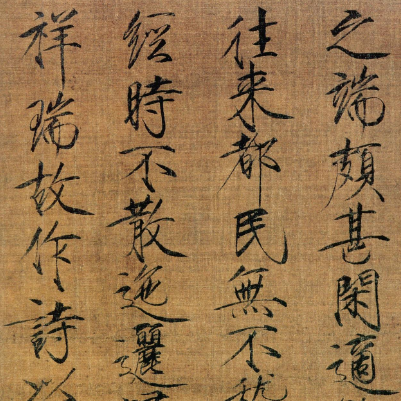 之端頗甚閑適
往来都民無不
經時不散迤邐
祥瑞故作詩以